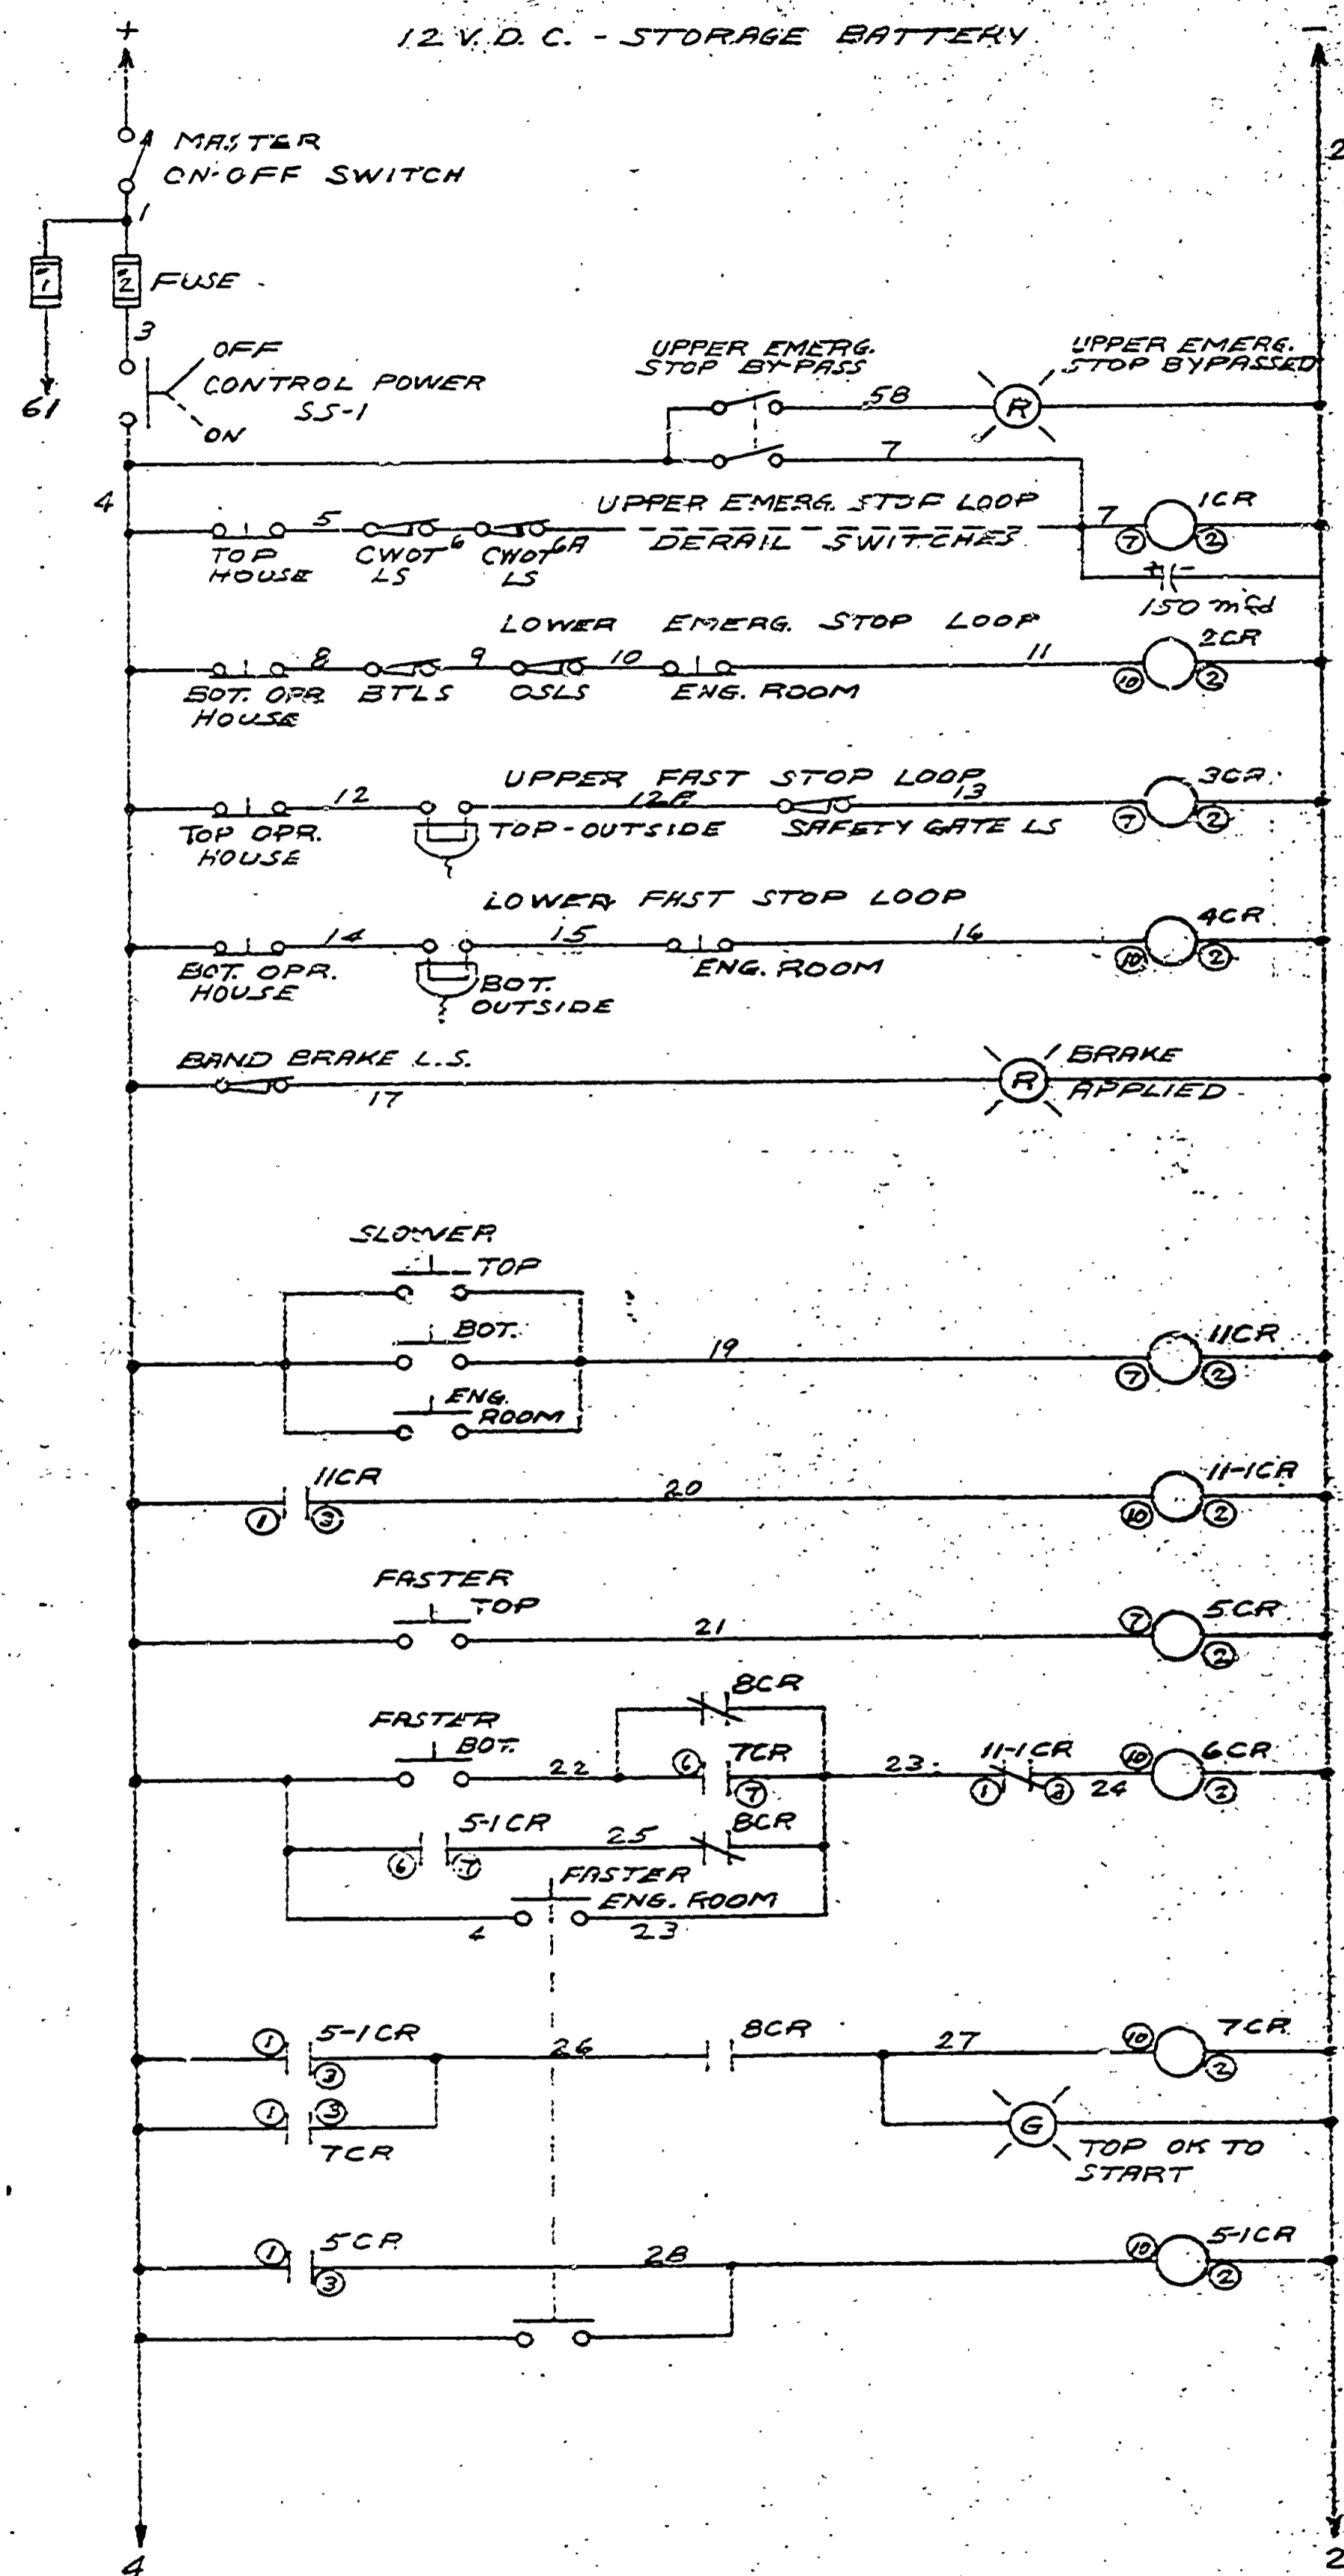 +
12 V. D. C. - STORAGE BATTERY
-
MASTER
ON-OFF SWITCH
2
1
1
2
FUSE
3
OFF
CONTROL POWER
SS-1
ON
61
UPPER EMERG.
STOP BY-PASS
UPPER EMERG.
STOP BYPASSED
58
R
7
4
5
6
6A
UPPER EMERG. STOP LOOP
7
1CR
TOP
HOUSE
CWOT
LS
CWOT
LS
DERAIL SWITCHES
7
2
+
-
150 mfd
LOWER EMERG. STOP LOOP
2CR
8
9
10
11
BOT. OPR.
HOUSE
BTLS
OSLS
ENG. ROOM
10
2
UPPER FAST STOP LOOP
3CR
12
12A
13
TOP OPR.
HOUSE
TOP-OUTSIDE
SAFETY GATE LS
7
2
LOWER FAST STOP LOOP
4CR
14
15
16
BOT. OPR.
HOUSE
BOT.
OUTSIDE
ENG. ROOM
10
2
BAND BRAKE L.S.
17
R
BRAKE
APPLIED
SLOWER
TOP
BOT.
19
11CR
7
2
ENG.
ROOM
11CR
20
11-1CR
1
3
10
2
FASTER
TOP
21
7
5CR
2
8CR
FASTER
BOT.
22
6
7CR
7
23
11-1CR
1
8
24
10
6CR
2
5-1CR
25
8CR
6
7
FASTER
ENG. ROOM
4
23
1
5-1CR
3
26
8CR
27
10
7CR
2
1
3
7CR
G
TOP OK TO
START
1
5CR
3
28
10
5-1CR
2
4
2